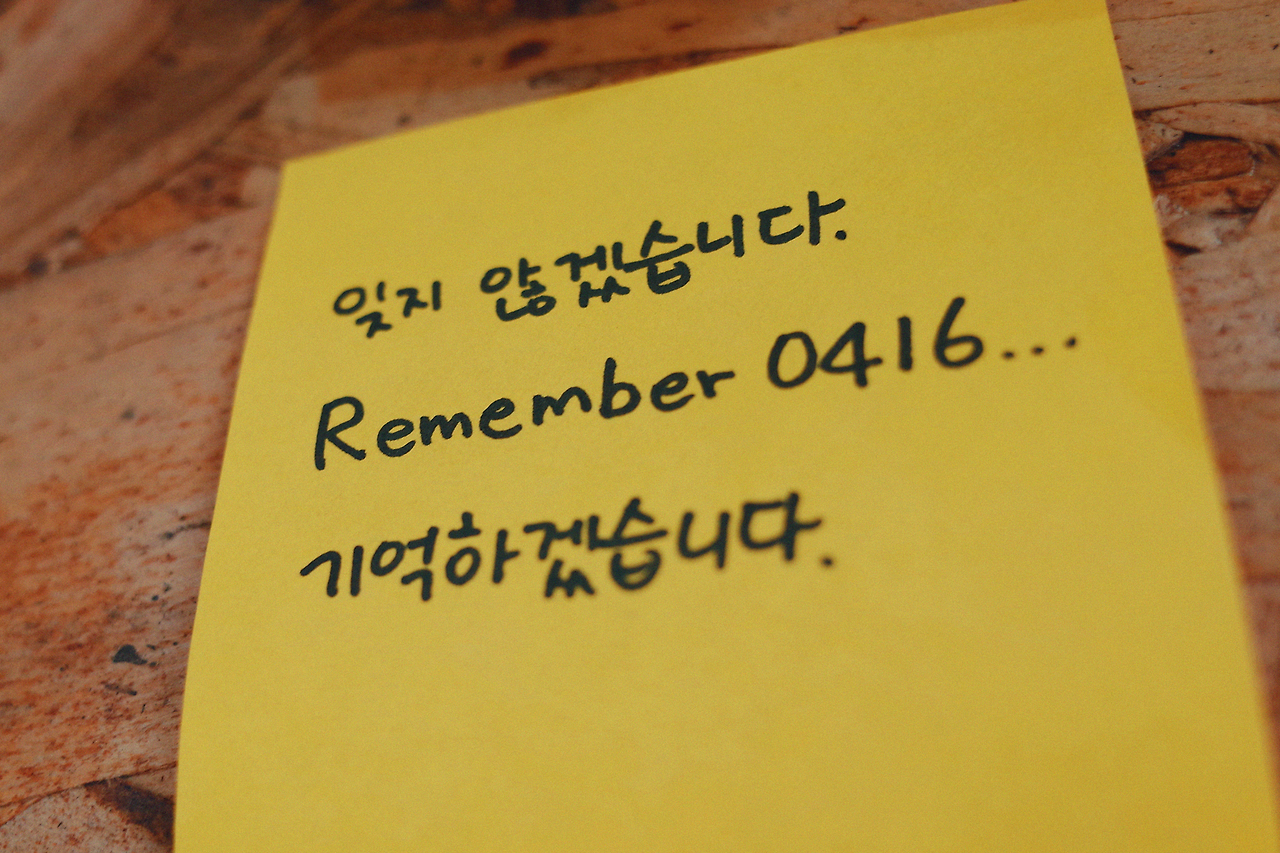 잊지 않겠습니다.
Remember 0416...
기억하겠습니다.